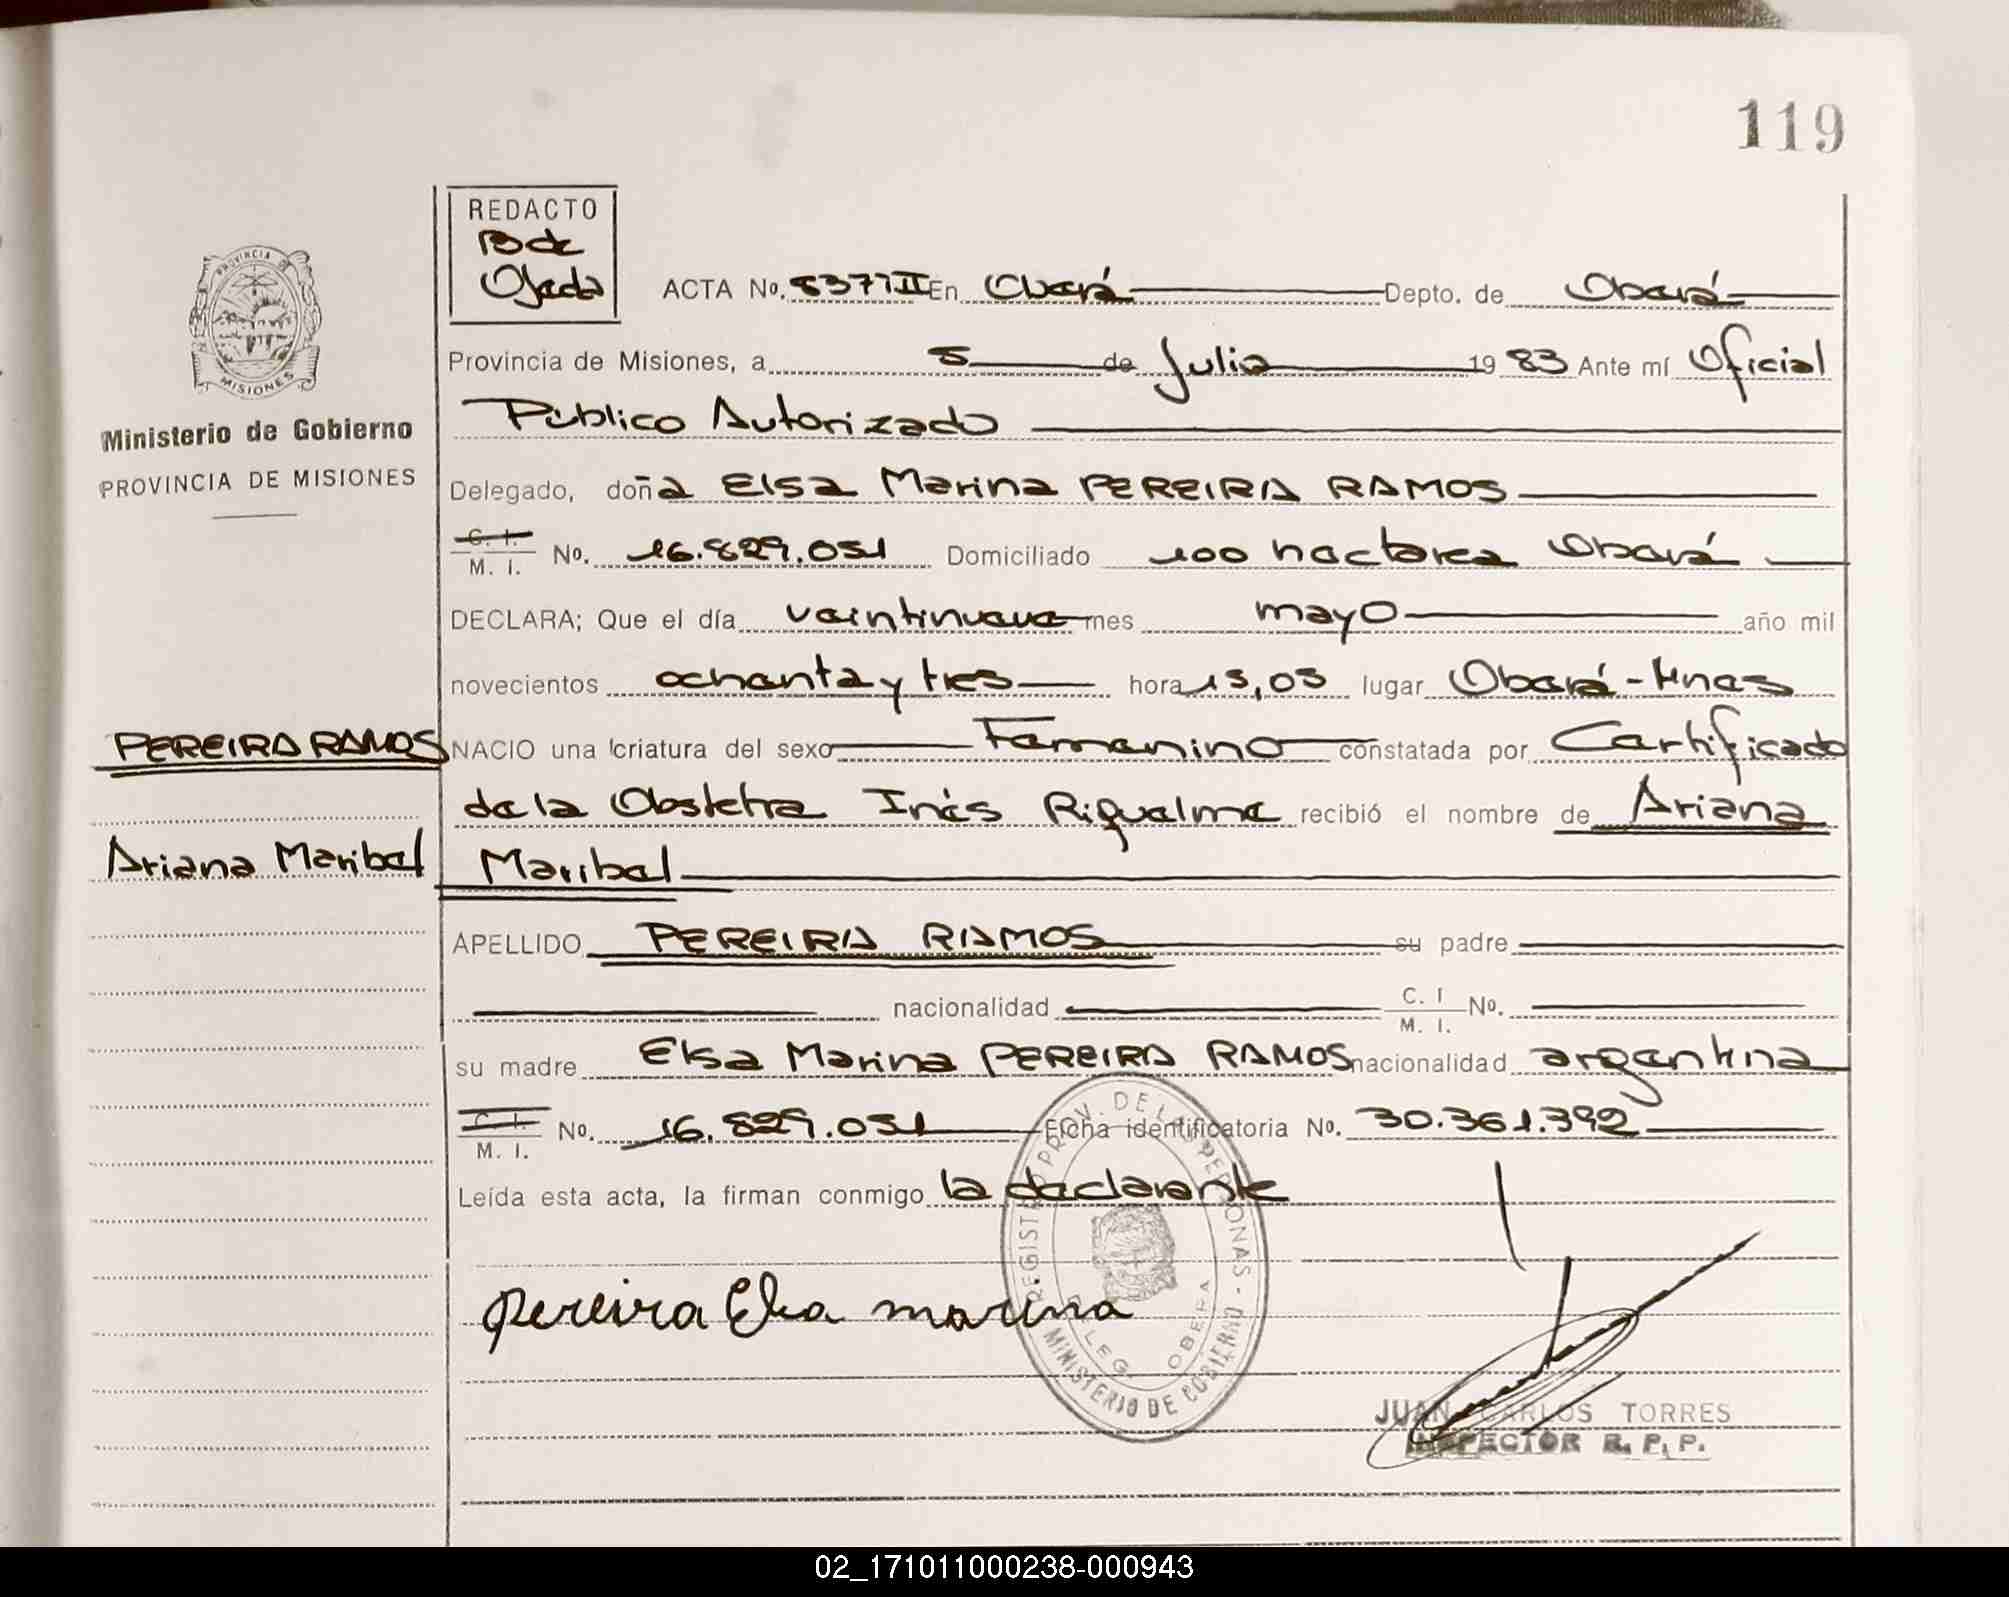 119
REDACTO
B de
Ojeda
ACTA No. 8377 II En Oberá Depto. de Oberá
PROVINCIA DE
MISIONES
Provincia de Misiones, a 5 de Julio 1983 Ante mí Oficial
Público Autorizado
Ministerio de Gobierno
PROVINCIA DE MISIONES
Delegado, doña Elsa Marina PEREIRA RAMOS
C. I.
M. I. No. 16.829.051 Domiciliado 100 hactarea Oberá
DECLARA; Que el día veintinueve mes mayo año mil
novecientos ochenta y tres hora 15,05 lugar Oberá-Mnes
PEREIRA RAMOS
NACIO una criatura del sexo Femenino constatada por Certificado
de la Obstetra Inés Riquelme recibió el nombre de Ariana
Ariana Maribel
Maribel
APELLIDO PEREIRA RAMOS su padre
nacionalidad C. I
M. I. No.
su madre Elsa Marina PEREIRA RAMOS nacionalidad argentina
C. I.
M. I. No. 16.829.051 Ficha identificatoria No. 30.361.392
Leída esta acta, la firman conmigo la declarante
REGISTRO PROV. DE LAS PERSONAS - MINISTERIO DE GOBIERNO
DELEG. OBERA
Pereira Elsa marina
JUAN CARLOS TORRES
INSPECTOR R. P. P.
02_171011000238-000943